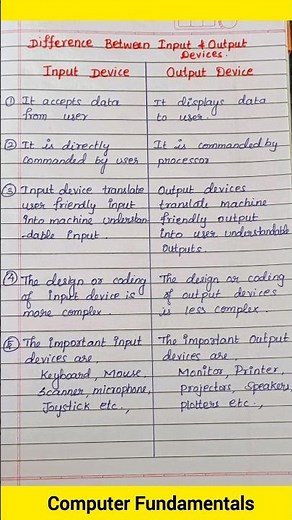 Difference Between Input & Output
Devices.
Input Device
Output Device
① It accepts data
from user
It displays data
to user.
② It is directly
commanded by user
It is commanded by
processor
③ Input device translate
user friendly input
into machine understan
-dable input.
Output devices
translate machine
friendly output
into user understandable
outputs.
④ The design or coding
of input device is
more complex.
The design or coding
of output devices
is less complex.
⑤ The important input
devices are,
Keyboard, Mouse,
Scanner, microphone,
Joystick etc.,
The important Output
devices are,
Monitor, Printer,
Projectors, Speakers,
plotters etc.,
Computer Fundamentals